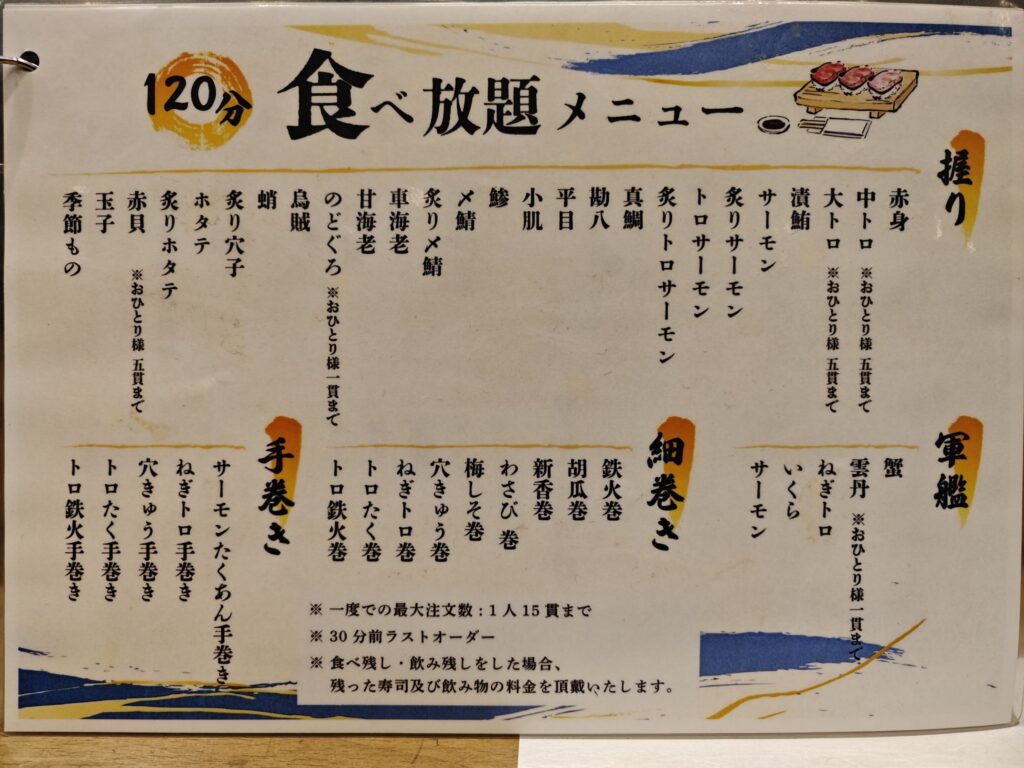 120分
食べ放題メニュー
握り
赤身
中トロ ※おひとり様 五貫まで
大トロ ※おひとり様 五貫まで
漬鮪
サーモン
炙りサーモン
トロサーモン
炙りトロサーモン
真鯛
勘八
平目
小肌
鯵
〆鯖
炙り〆鯖
車海老
甘海老
のどぐろ ※おひとり様一貫まで
烏賊
蛸
炙り穴子
ホタテ
炙りホタテ
赤貝 ※おひとり様 五貫まで
玉子
季節もの
軍艦
蟹
雲丹 ※おひとり様一貫まで.
ねぎトロ
いくら
サーモン
細巻き
鉄火巻
胡瓜巻
新香巻
わさび 巻
梅しそ巻
穴きゅう巻
ねぎトロ巻
トロたく巻
トロ鉄火巻
手巻き
サーモンたくあん手巻き
ねぎトロ手巻き
穴きゅう手巻き
トロたく手巻き
トロ鉄火手巻き
※ 一度での最大注文数:1人15貫まで
※ 30分前ラストオーダー
※ 食べ残し・飲み残しをした場合、
残った寿司及び飲み物の料金を頂戴いたします。